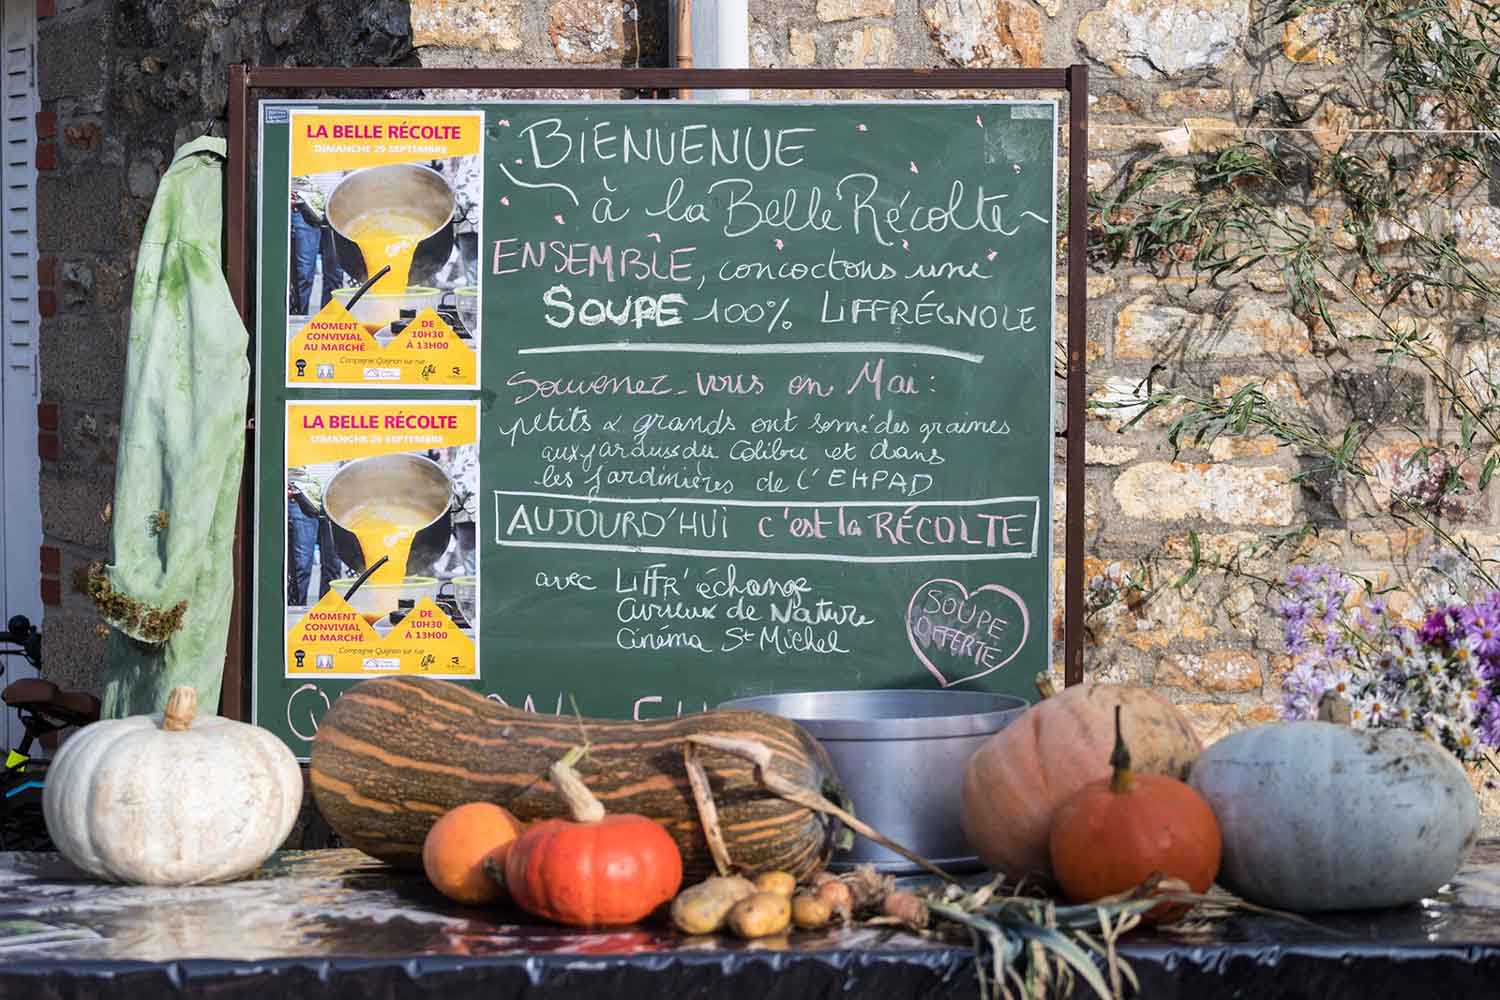 LA BELLE RÉCOLTE
DIMANCHE 29 SEPTEMBRE
MOMENT
CONVIVIAL
AU MARCHÉ
DE
10H30
À 13H00
Compagnie Quignon sur rue
LA BELLE RÉCOLTE
DIMANCHE 29 SEPTEMBRE
MOMENT
CONVIVIAL
AU MARCHÉ
DE
10H30
À 13H00
Compagnie Quignon sur rue
BIENVENUE
à la Belle Récolte
ENSEMBLE, concoctons une
SOUPE 100% LIFFRÉGNOLE
Souvenez-vous en Mai :
petits & grands ont semé des graines
aux jardins du Colibri et dans
les jardinières de l'EHPAD
AUJOURD'HUI c'est la RÉCOLTE
avec LIFFR'échange
Curieux de Nature
Cinéma St Michel
SOUPE
OFFERTE